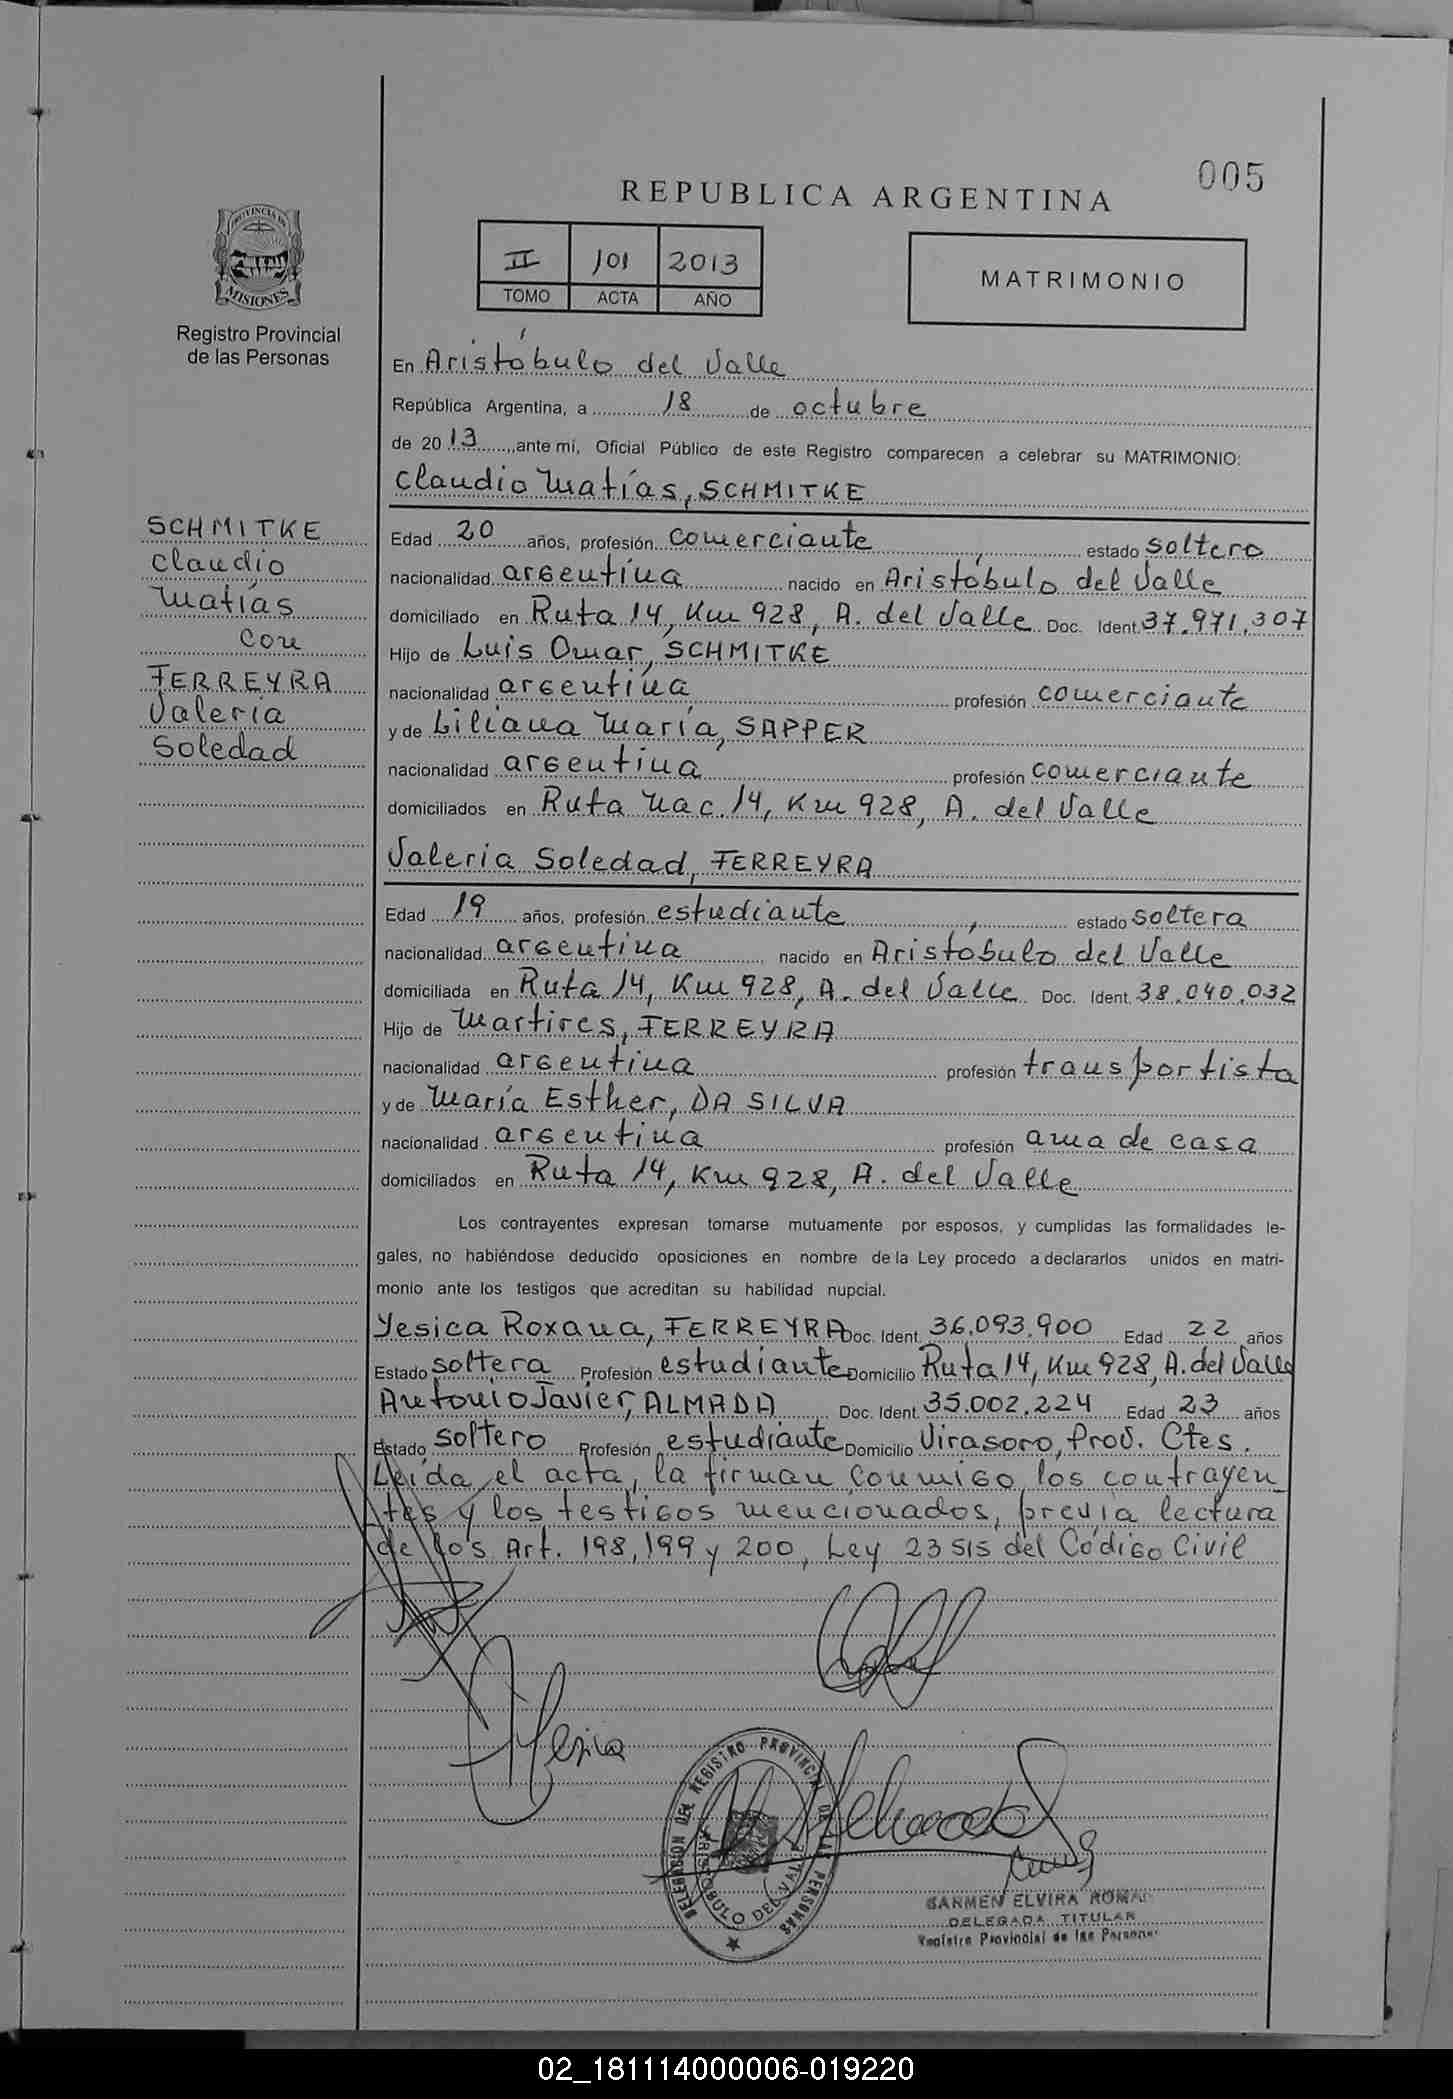 005
REPUBLICA ARGENTINA
PROVINCIA DE
MISIONES
Registro Provincial
de las Personas
II 101 2013
TOMO ACTA AÑO
MATRIMONIO
En Aristóbulo del Valle
República Argentina, a 18 de octubre
de 2013, ante mí, Oficial Público de este Registro comparecen a celebrar su MATRIMONIO:
Claudio Matías, SCHMITKE
SCHMITKE
Claudio
Matías
con
FERREYRA
Valeria
Soledad
Edad 20 años, profesión comerciante estado soltero
nacionalidad argentina nacido en Aristóbulo del Valle
domiciliado en Ruta 14, Km 928, A. del Valle Doc. Ident. 37.971.307
Hijo de Luis Omar, SCHMITKE
nacionalidad argentina profesión comerciante
y de Liliana María, SAPPER
nacionalidad argentina profesión comerciante
domiciliados en Ruta Nac. 14, Km 928, A. del Valle
Valeria Soledad, FERREYRA
Edad 19 años, profesión estudiante estado soltera
nacionalidad argentina nacido en Aristóbulo del Valle
domiciliada en Ruta 14, Km 928, A. del Valle Doc. Ident. 38.040.032
Hijo de Martires, FERREYRA
nacionalidad argentina profesión transportista
y de María Esther, DA SILVA
nacionalidad argentina profesión ama de casa
domiciliados en Ruta 14, Km 928, A. del Valle
Los contrayentes expresan tomarse mutuamente por esposos, y cumplidas las formalidades le-
gales, no habiéndose deducido oposiciones en nombre de la Ley procedo a declararlos unidos en matri-
monio ante los testigos que acreditan su habilidad nupcial.
Yesica Roxana, FERREYRA Doc. Ident. 36.093.900 Edad 22 años
Estado soltera Profesión estudiante Domicilio Ruta 14, Km 928, A. del Valle
Antonio Javier, ALMADA Doc. Ident. 35.002.224 Edad 23 años
Estado soltero Profesión estudiante Domicilio Virasoro, Prov. Ctes.
Leída el acta, la firman conmigo los contrayen_
tes y los testigos mencionados, previa lectura
de los Art. 198, 199 y 200, Ley 23515 del Código Civil
Yesica
DELEGACION DEL REGISTRO PROVINCIAL DE LAS PERSONAS
ARISTOBULO DEL VALLE
CARMEN ELVIRA ROMA
DELEGADA TITULAR
Registro Provincial de las Personas
02_181114000006-019220